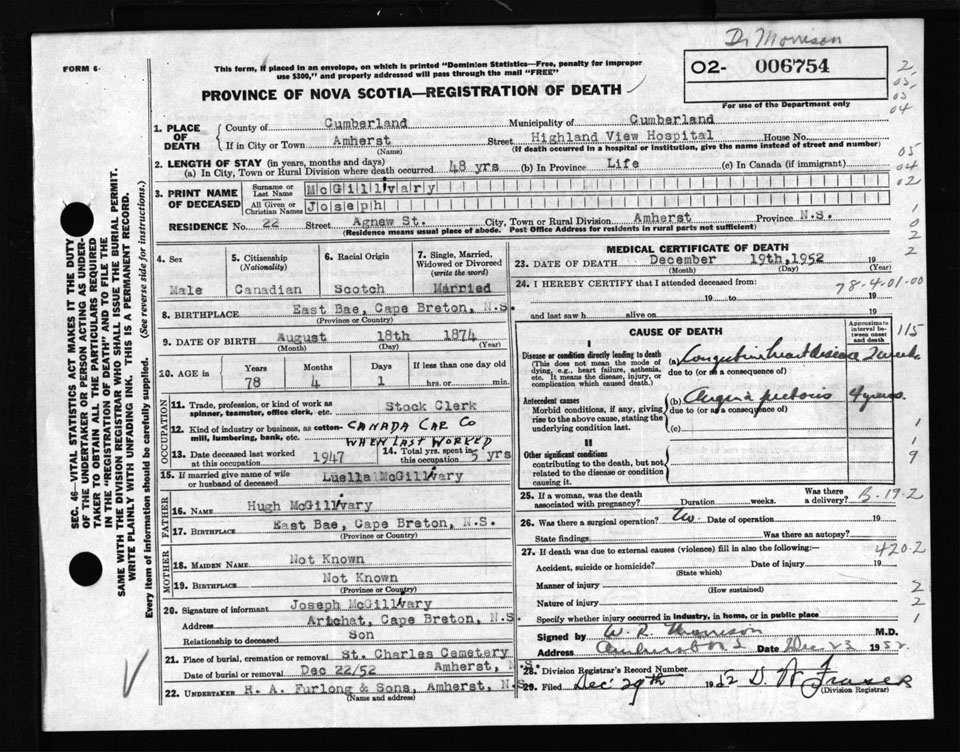 Dr Morrison
FORM 6
This form, if placed in an envelope, on which is printed "Dominion Statistics—Free, penalty for improper
use $300," and properly addressed will pass through the mail "FREE"
02- 006754
PROVINCE OF NOVA SCOTIA—REGISTRATION OF DEATH
For use of the Department only
2
05
03
04
1. PLACE OF DEATH
County of Cumberland Municipality of Cumberland
If in City or Town Amherst Street Highland View Hospital House No.
(Name) (If death occurred in a hospital or institution, give the name instead of street and number)
2. LENGTH OF STAY (in years, months and days)
(a) In City, Town or Rural Division where death occurred 48 yrs (b) In Province Life (c) In Canada (if immigrant)
05
04
02
3. PRINT NAME OF DECEASED
Surname or Last Name McGillivary
All Given or Christian Names Joseph
RESIDENCE No. 22 Street Agnew St. City, Town or Rural Division Amherst Province N.S.
(Residence means usual place of abode. Post Office Address for residents in rural parts not sufficient)
1
0
2
2
4. Sex Male
5. Citizenship (Nationality) Canadian
6. Racial Origin Scotch
7. Single, Married, Widowed or Divorced (write the word) Married
8. BIRTHPLACE East Bae, Cape Breton, N.S.
(Province or Country)
9. DATE OF BIRTH August 18th 1874
(Month) (Day) (Year)
10. AGE in Years Months Days If less than one day old
78 4 1 hrs. or min.
OCCUPATION
11. Trade, profession, or kind of work as spinner, teamster, office clerk, etc. Stock Clerk
12. Kind of industry or business, as cotton-mill, lumbering, bank, etc. CANADA CAR CO
WHEN LAST WORKED
13. Date deceased last worked at this occupation 1947
14. Total yrs. spent in this occupation 5 yrs
15. If married give name of wife or husband of deceased Luella McGillivary
FATHER
16. NAME Hugh McGillivary
17. BIRTHPLACE East Bae, Cape Breton, N.S.
(Province or Country)
MOTHER
18. MAIDEN NAME Not Known
19. BIRTHPLACE Not Known
(Province or Country)
20. Signature of informant Joseph McGillivary
Address Arichat, Cape Breton, N.S
Relationship to deceased Son
21. Place of burial, cremation or removal St. Charles Cemetery
Date of burial or removal Dec 22/52 Amherst, N.S.
22. UNDERTAKER R. A. Furlong & Sons, Amherst, N.S
(Name and address)
MEDICAL CERTIFICATE OF DEATH
23. DATE OF DEATH December 19th, 1952 19
(Month) (Day) (Year)
24. I HEREBY CERTIFY that I attended deceased from:
78-4-01-00
19 to 19
and last saw h alive on 19
CAUSE OF DEATH
Approximate interval between onset and death
115
I
Disease or condition directly leading to death
(This does not mean the mode of dying, e.g., heart failure, asthenia, etc. It means the disease, injury, or complication which caused death.)
(a) Congestive heart disease 2 weeks
due to (or as a consequence of)
Antecedent causes
Morbid conditions, if any, giving rise to the above cause, stating the underlying condition last.
(b) Angina pectoris 4 years.
due to (or as a consequence of)
(c)
II
Other significant conditions
contributing to the death, but not related to the disease or condition causing it.
1
1
9
25. If a woman, was the death associated with pregnancy? Duration weeks. Was there a delivery?
B-19-2
26. Was there a surgical operation? No Date of operation 19
State findings Was there an autopsy?
27. If death was due to external causes (violence) fill in also the following:—
420.2
Accident, suicide or homicide? Date of injury 19
(State which)
Manner of injury
(How sustained)
Nature of injury
Specify whether injury occurred in industry, in home, or in public place
2
2
1
Signed by W. R. Morrison M.D.
Address Amherst N S Date Dec 23 1952.
28. Division Registrar's Record Number
29. Filed Dec 29th 1952 D. W. Fraser
(Division Registrar)
SEC. 46—VITAL STATISTICS ACT MAKES IT THE DUTY
OF THE UNDERTAKER OR PERSON ACTING AS UNDER-
TAKER TO OBTAIN ALL THE PARTICULARS REQUIRED
IN THE "REGISTRATION OF DEATH" AND TO FILE THE
SAME WITH THE DIVISION REGISTRAR WHO SHALL ISSUE THE BURIAL PERMIT.
WRITE PLAINLY WITH UNFADING INK. THIS IS A PERMANENT RECORD.
Every item of information should be carefully supplied. (See reverse side for instructions.)